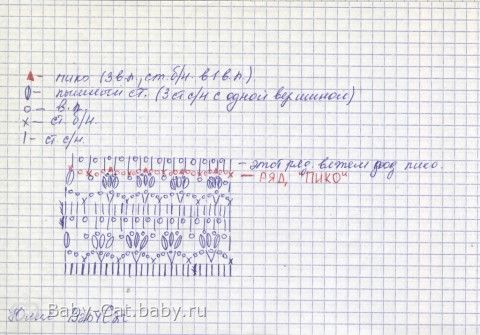 ▲ - пико (3 в.п., ст. б/н. в 1 в.п.).
- пышный ст. (3 ст с/н с одной вершиной)
о - в.п.
х - ст. б/н.
| - ст. с/н.
- этот ряд вяжем под пико.
- РЯД "ПИКО"
Baby-Cat.baby.ru